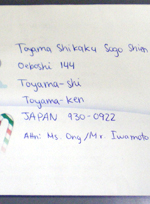 Toyama Shikaku Sogo Shien
Oeboshi 144
Toyama-shi
Toyama-ken
JAPAN 930-0922
Attn: Ms. Ong / Mr. Iwamoto